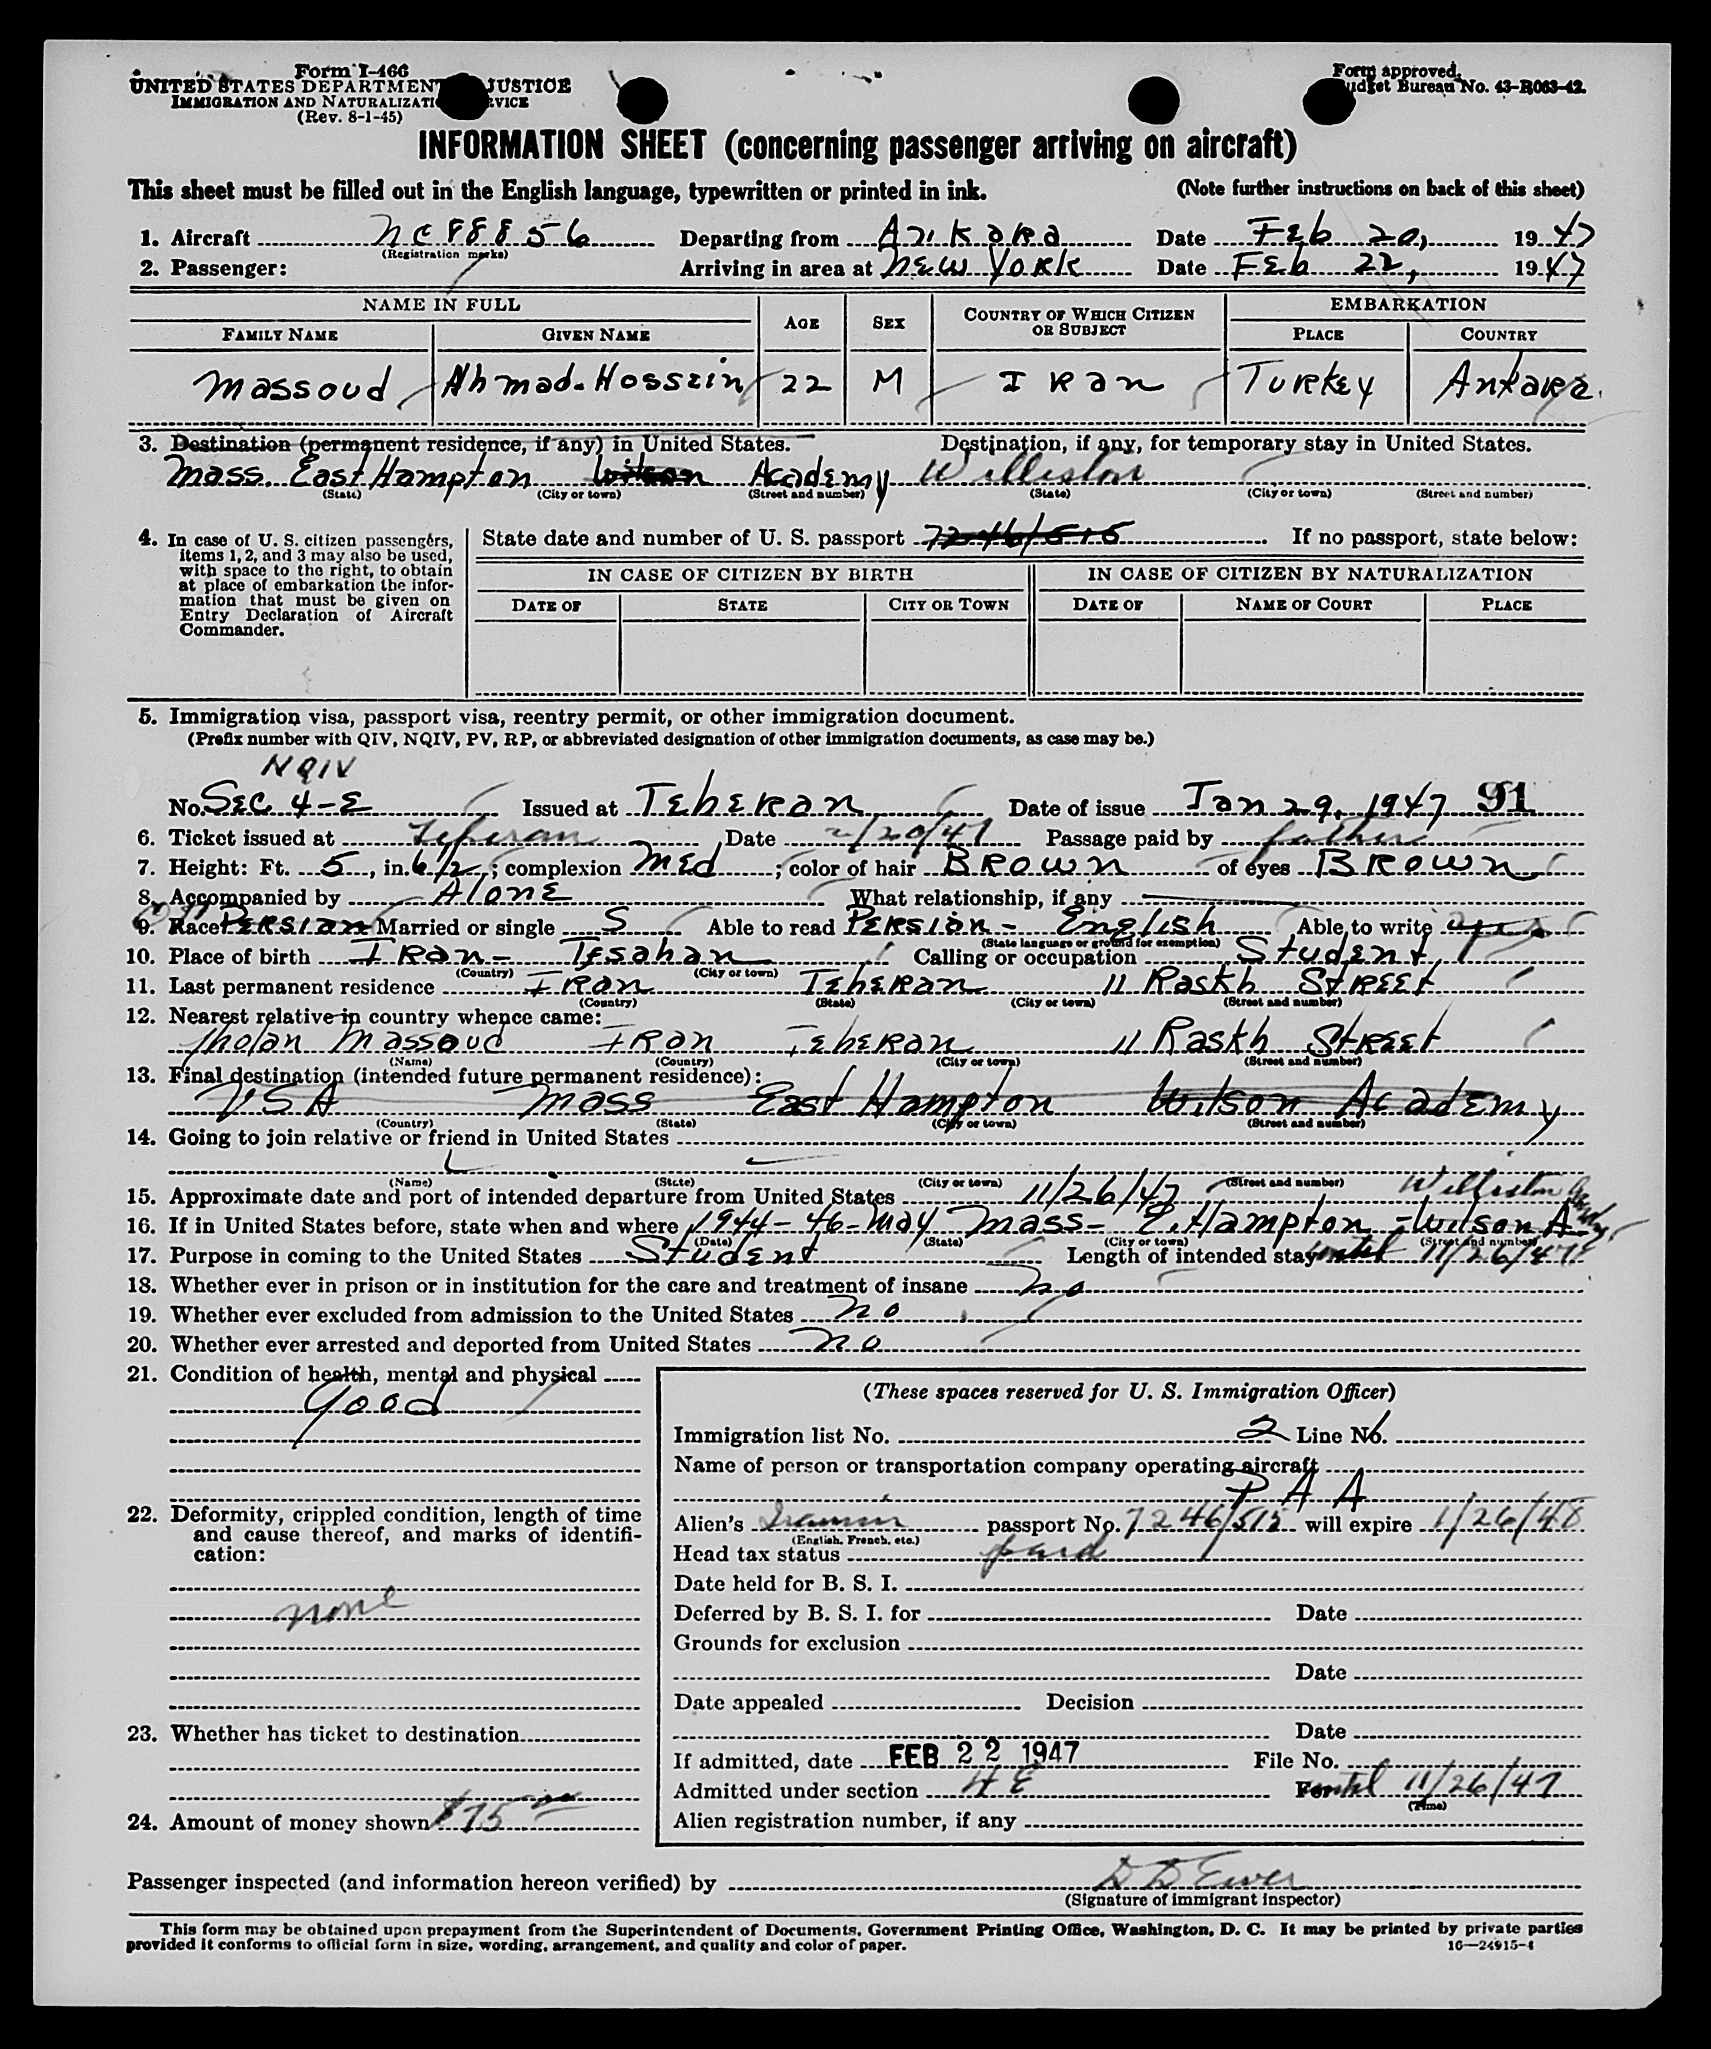 Form I-466
UNITED STATES DEPARTMENT JUSTICE
IMMIGRATION AND NATURALIZATI RVICE
(Rev. 8-1-45)
Form approved.
udget Bureau No. 43-R063-42.
INFORMATION SHEET (concerning passenger arriving on aircraft)
This sheet must be filled out in the English language, typewritten or printed in ink. (Note further instructions on back of this sheet)
1. Aircraft NC 88856 Departing from Ankara Date Feb 20, 1947
(Registration marks)
2. Passenger: Arriving in area at New York Date Feb 22, 1947
NAME IN FULL AGE SEX COUNTRY OF WHICH CITIZEN OR SUBJECT EMBARKATION
FAMILY NAME GIVEN NAME PLACE COUNTRY
Massoud Ahmad-Hossein 22 M Iran Turkey Ankara
3. Destination (permanent residence, if any) in United States. Destination, if any, for temporary stay in United States.
Mass. East Hampton Academy Williston
(State) (City or town) (Street and number) (State) (City or town) (Street and number)
4. In case of U. S. citizen passengers, items 1, 2, and 3 may also be used, with space to the right, to obtain at place of embarkation the information that must be given on Entry Declaration of Aircraft Commander.
State date and number of U. S. passport 7246/515 If no passport, state below:
IN CASE OF CITIZEN BY BIRTH IN CASE OF CITIZEN BY NATURALIZATION
DATE OF STATE CITY OR TOWN DATE OF NAME OF COURT PLACE
5. Immigration visa, passport visa, reentry permit, or other immigration document.
(Prefix number with QIV, NQIV, PV, RP, or abbreviated designation of other immigration documents, as case may be.)
NQIV
No. Sec 4-E Issued at Teheran Date of issue Jan 29, 1947 91
6. Ticket issued at Teheran Date 2/20/47 Passage paid by father
7. Height: Ft. 5, in. 6 1/2; complexion Med; color of hair Brown of eyes Brown
8. Accompanied by Alone What relationship, if any
9. Race Persian Married or single S Able to read Persian - English Able to write yes
(State language or ground for exemption)
10. Place of birth Iran - Tesahan Calling or occupation Student
(Country) (City or town)
11. Last permanent residence Iran Teheran 11 Raskh Street
(Country) (State) (City or town) (Street and number)
12. Nearest relative in country whence came:
Massoud Iran Teheran 11 Raskh Street
(Name) (Country) (City or town) (Street and number)
13. Final destination (intended future permanent residence):
USA Mass East Hampton Wilson Academy
(Country) (State) (City or town) (Street and number)
14. Going to join relative or friend in United States
(Name) (State) (City or town) (Street and number)
15. Approximate date and port of intended departure from United States 11/26/47 Williston
16. If in United States before, state when and where 1944-46-May Mass- E.Hampton - Wilson A
(Date) (State) (City or town) (Street and number)
17. Purpose in coming to the United States Student Length of intended stay until 11/26/47
18. Whether ever in prison or in institution for the care and treatment of insane no
19. Whether ever excluded from admission to the United States no
20. Whether ever arrested and deported from United States no
21. Condition of health, mental and physical
Good
22. Deformity, crippled condition, length of time and cause thereof, and marks of identification:
none
23. Whether has ticket to destination
24. Amount of money shown $75.00
(These spaces reserved for U. S. Immigration Officer)
Immigration list No. 2 Line No. 1
Name of person or transportation company operating aircraft
PAA
Alien's Iranian passport No. 7246/515 will expire 1/26/48
(English, French, etc.)
Head tax status paid
Date held for B. S. I.
Deferred by B. S. I. for Date
Grounds for exclusion
Date
Date appealed Decision
Date
If admitted, date FEB 22 1947 File No.
Admitted under section 4E For until 11/26/47
(Time)
Alien registration number, if any
Passenger inspected (and information hereon verified) by D D Ewer
(Signature of immigrant inspector)
This form may be obtained upon prepayment from the Superintendent of Documents, Government Printing Office, Washington, D. C. It may be printed by private parties
provided it conforms to official form in size, wording, arrangement, and quality and color of paper. 16—24915-1